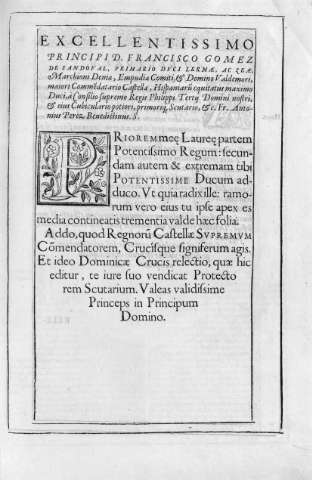 EXCELLENTISSIMO
PRINCIPI D. FRANCISCO GOMEZ
DE SANDOVAL, PRIMARIO DUCI LERMAE, AC ZEAE,
Marchioni Deniæ, Empudiæ Comiti, & Domino Valdemori,
maiori Commēdatario Castellæ, Hispaniarū equitatus maximo
Duci, à Cōsilijs supremo Regis Philippi Tertij Domini nostri,
& eius Cubiculario potiori, primoq; Scutario, &c. Fr. Anto-
nius Perez, Benedictinus S.
PRIOREM meę Laureę partem
Potentissimo Regum: secun-
dam autem & extremam tibi
POTENTISSIME Ducum ad-
duco. Vt quia radix ille: ramo-
rum vero eius tu ipse apex es
media contineatis trementia valde hæc folia.
Addo, quod Regnorū Castellæ SVPREMVM
Cōmendatorem, Crucisque signiferum agis.
Et ideo Dominicæ Crucis relectio, quæ hic
editur, te iure suo vendicat Protecto
rem Scutarium. Valeas validissime
Princeps in Principum
Domino.